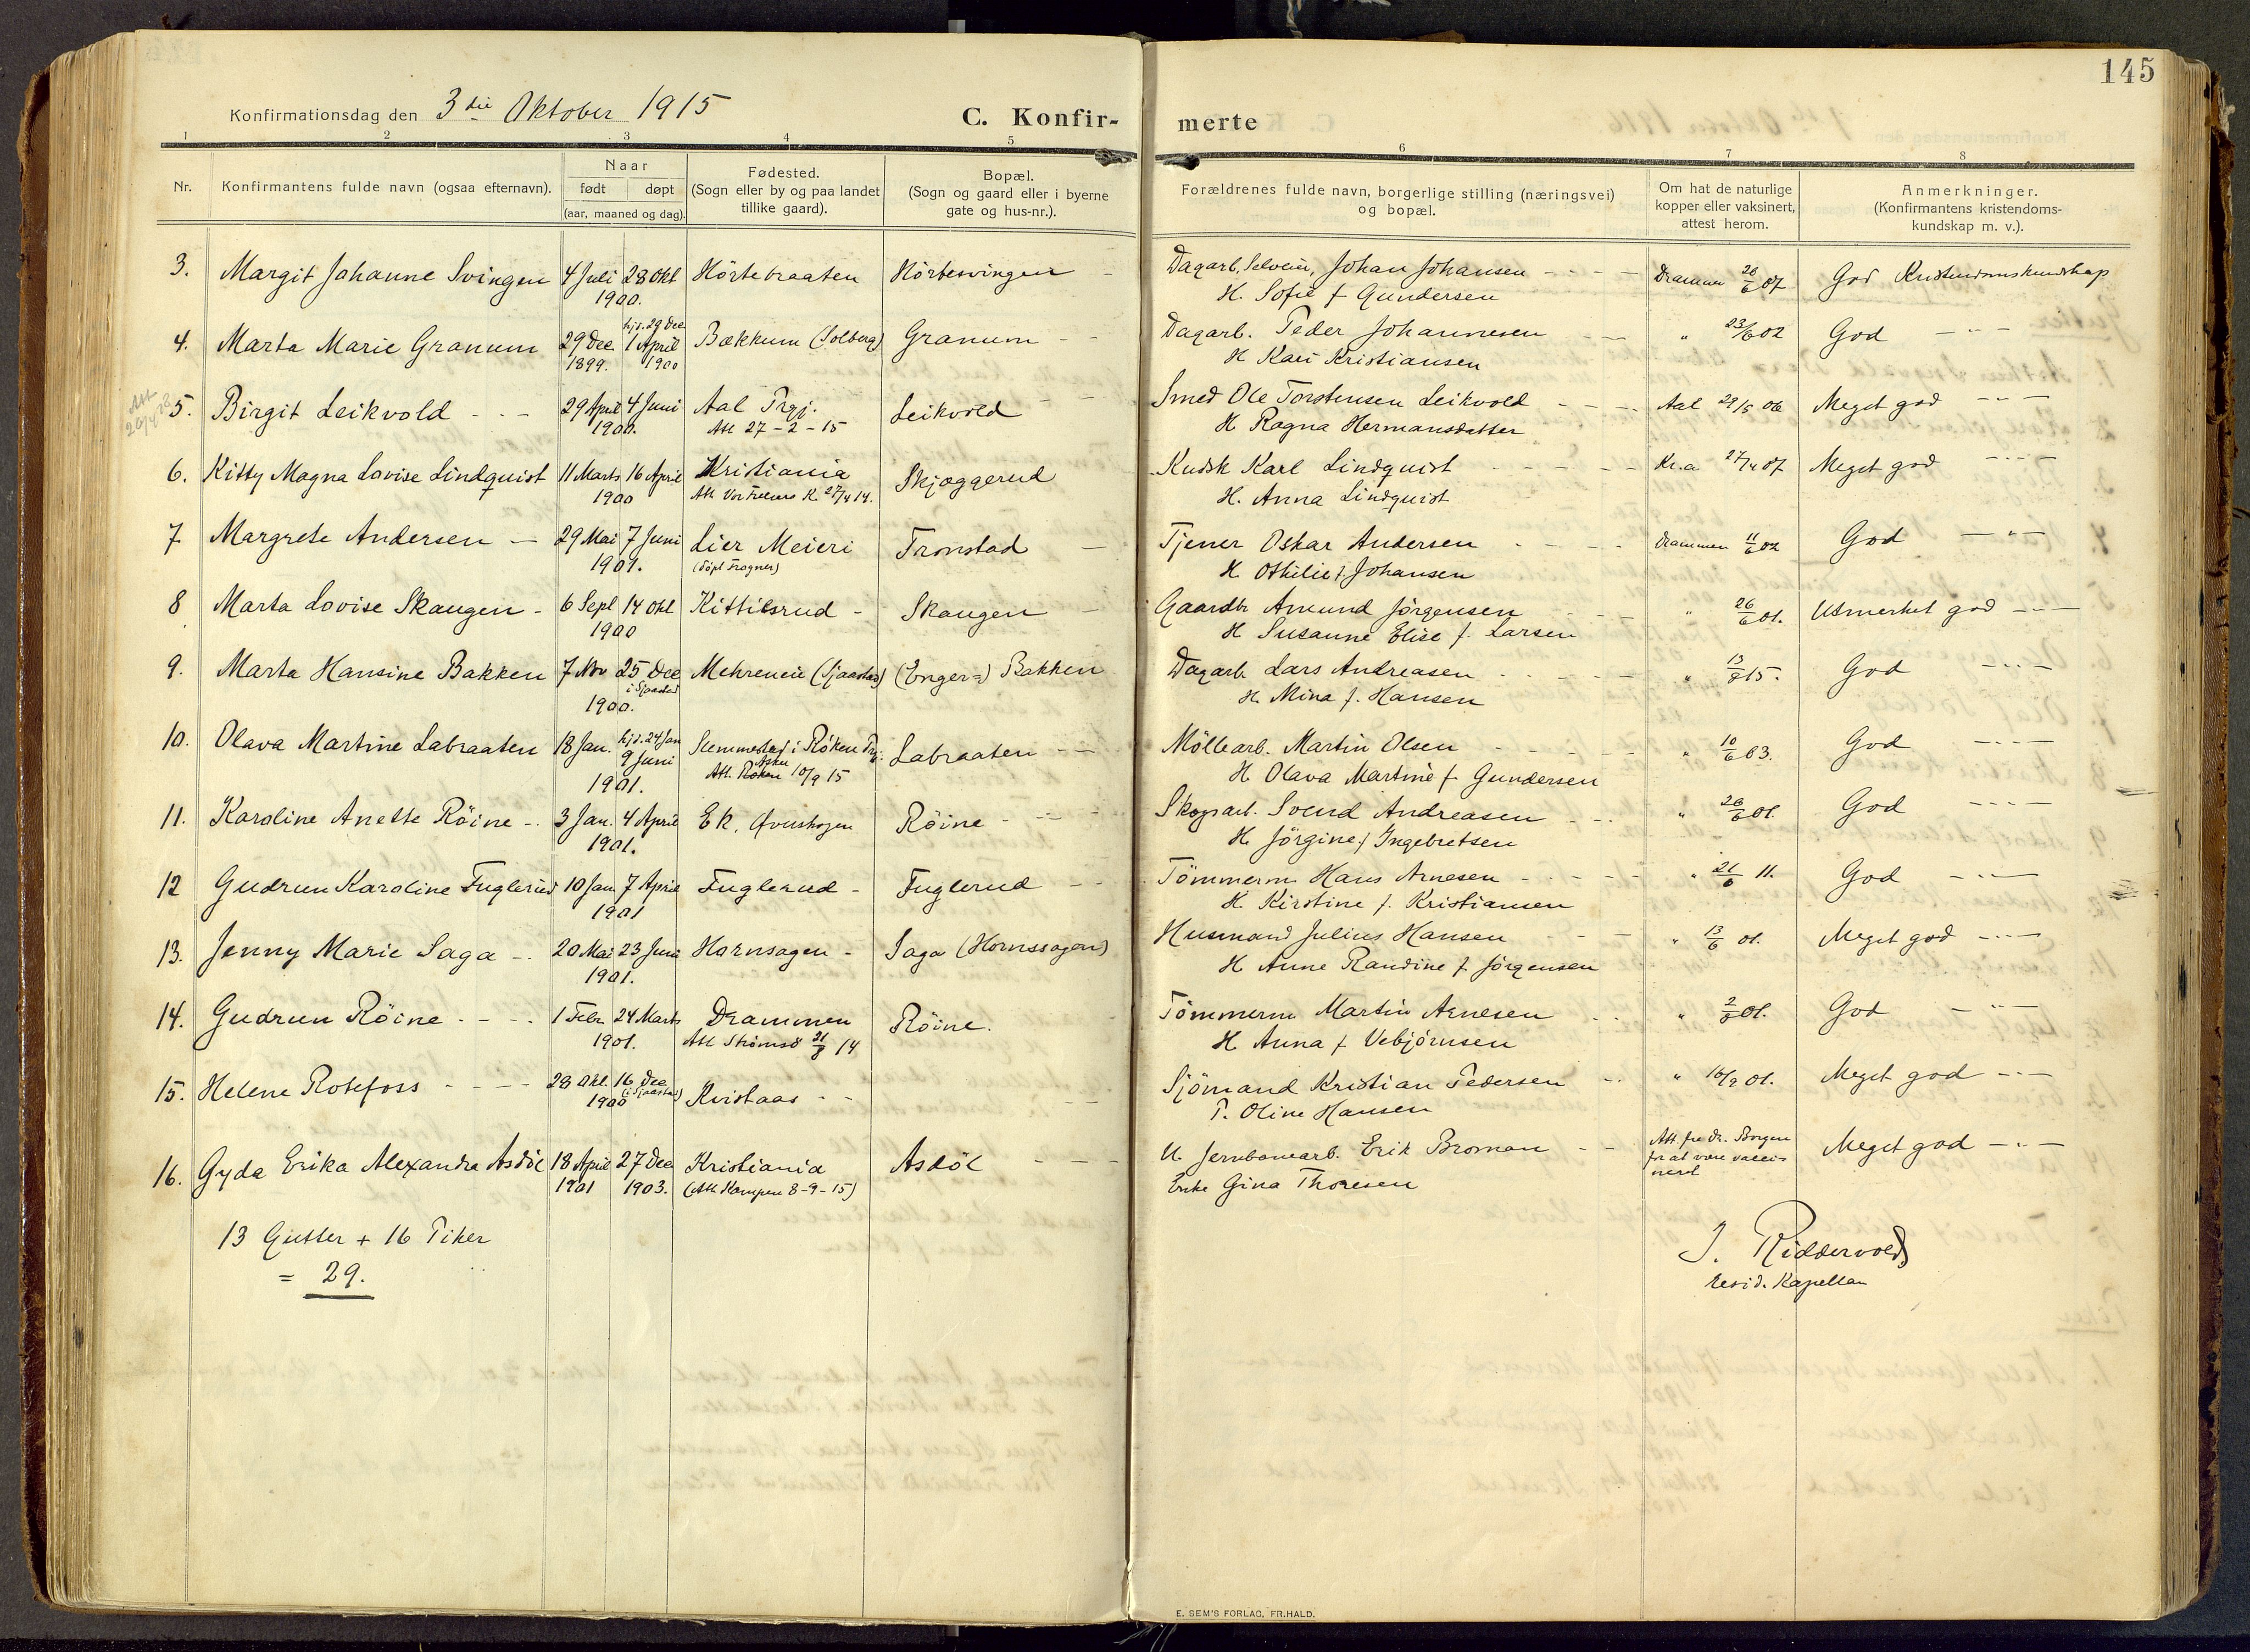 145
Konfirmationsdag den 3die Oktober 1915
C. Konfir- merte
1 2 3 4 5 6 7 8
Nr.
Konfirmantens fulde navn (ogsaa efternavn).
Naar
født døpt
(aar, maaned og dag).
Fødested.
(Sogn eller by og paa landet
tillike gaard).
Bopæl.
(Sogn og gaard eller i byerne
gate og hus-nr.).
Forældrenes fulde navn, borgerlige stilling (næringsvei)
og bopæl.
Om hat de naturlige
kopper eller vaksinert,
attest herom.
Anmerkninger.
(Konfirmantens kristendoms-
kundskap m. v.).
3. Margit Johanne Svingen 4 Juli 28 Okt Hörtebraaten Hörtesvingen Dagarb. Selveier, Johan Johansen Drammen 26/6 07 God Kristendomskundskap
1900. H. Sofie f Gundersen
hjd. 29 Dec
4. Marta Marie Granum 29 Dec 1 April Bækkum (Solberg) Granum Dagarb. Peder Johannesen " 23/6 02 God - " -
1899. 1900 H Kari Kristiansen
Att
5. Birgit Leikvold 29 April 4 Juni Aal Prgj. Leikvold Smed Ole Torstensen Leikvold Aal 29/5 06 Meget god - " -
1900. Att 27-2-15 H Ragna Hermansdatter
6. Kitty Magna Lovise Lindquist 11 Marts 16 April Kristiania Skjæggerud Kudsk Karl Lindquist Kr.a 27/4 07 Meget god - " -
1900 Att Vor Frelsers K. 27/4 14. H. Anna Lindquist
7 Margrete Andersen 29 Mai 7 Juni Lier Meieri Tronstad Tjener Oskar Andersen Drammen 11/6 02 God - " -
1901. (döpt Frogner) H. Othilie f. Johansen
8 Marta Lovise Skaugen 6 Sept 14 Okt Kittilsrud Skaugen Gaardbr Amund Jörgensen " 26/6 01. Utmerket god - " -
1900 H Susanne Elise f. Larsen
9. Marta Hansine Bakken 7 Nov 25 Dec Mehreneie (Sjaastad) (Enger=) Bakken Dagarb. Lars Andreasen " 13/8 15. God - " -
i Sjaastad
1900. H. Mina f. Hansen
10. Olava Martine Labraaten 18 Jan. hjd. 24 Jan Slemmestad i Röken Prgj. Labraaten Möllearb. Martin Olsen " 10/6 03. God - " -
9 Juni Asker
1901. Att. Röken 10/9 15 H. Olava Martine f Gundersen
11. Karoline Anette Röine 3 Jan. 4 April Ek, Röine Skogsarb. Svend Andreasen " 26/6 01. God - " -
1901. H Jörgine f Ingebretsen
12 Gudrun Karoline Fuglerud 10 Jan 7 April Fuglerud Fuglerud Tömmerm Hans Arnesen " 21/6 11. God - " -
1901 H. Kirstine f. Kristiansen
13. Jenny Marie Saga 20 Mai 23 Juni Hornsagen Saga (Hornssagen) Husmand Julius Hansen " 13/6 01. Meget god - " -
1901. H Anne Randine f Jörgensen
14. Gudrun Röine 1 Febr 24 Marts Drammen Röine. Tömmerm Martin Arnesen " 2/6 01. God - " -
1901. Att Strömsö 31/8 14 H Anna f Vebjörnsen
15. Helene Rotefoss 28 Okt. 16 Dec Kvistaas Sjömand Kristian Pedersen " 10/9 01. Meget god - " -
1900 (i Sjaastad) P. Oline Hansen
16. Gyda Erika Alexandra Asdöl 18 April 27 Dec Kristiania Asdöl U. Jernbanearb. Erik Broman Att. fra Dr. Borgen Meget god - " -
1901 1903. (Att Kampen 8-9-15) Enke Gina Thoresen for at være vacci-
nert
13 Gutter + 16 Piker
= 29.
J. Riddervold
resid. Kapellan
E. SEM'S FORLAG, FR.HALD.